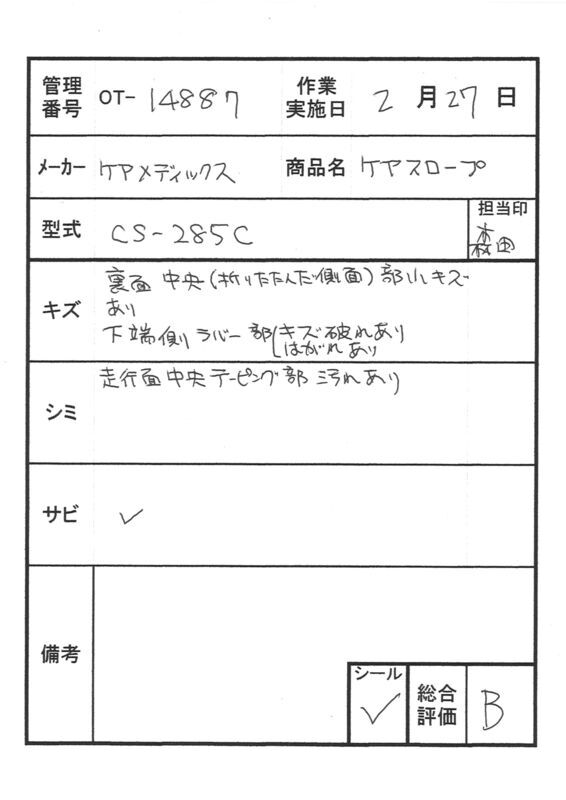 管理番号 OT- 14887 作業実施日 2月27日
メーカー ケアメディックス 商品名 ケアスロープ
型式 CS-285C 担当印 森田
キズ 裏面 中央(折りたたんだ側面)部 小キズ
あり
下端側 ラバー部 キズ破れあり
はがれあり
シミ 走行面 中央 テーピング部 汚れあり
サビ ✓
備考
シール ✓ 総合評価 B